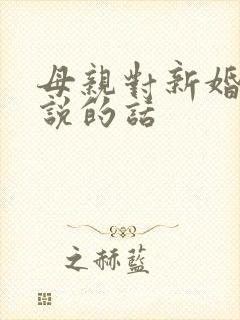 母親對新婚
說的話
之赫藍